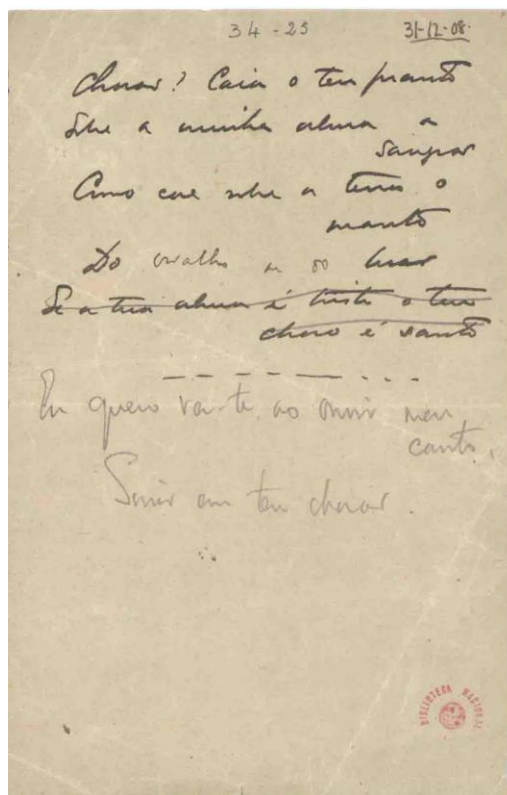 34-25
31-12-08
Choras? Caia o teu pranto
Sobre a minha alma a
sangrar
Como cae sobre a terra o
manto
Do orvalho ou do luar
Se a tua alma é triste o teu
choro é santo
Eu quero ver-te, ao ouvir meu
canto,
Sorrir em teu chorar.
BIBLIOTECA NACIONAL